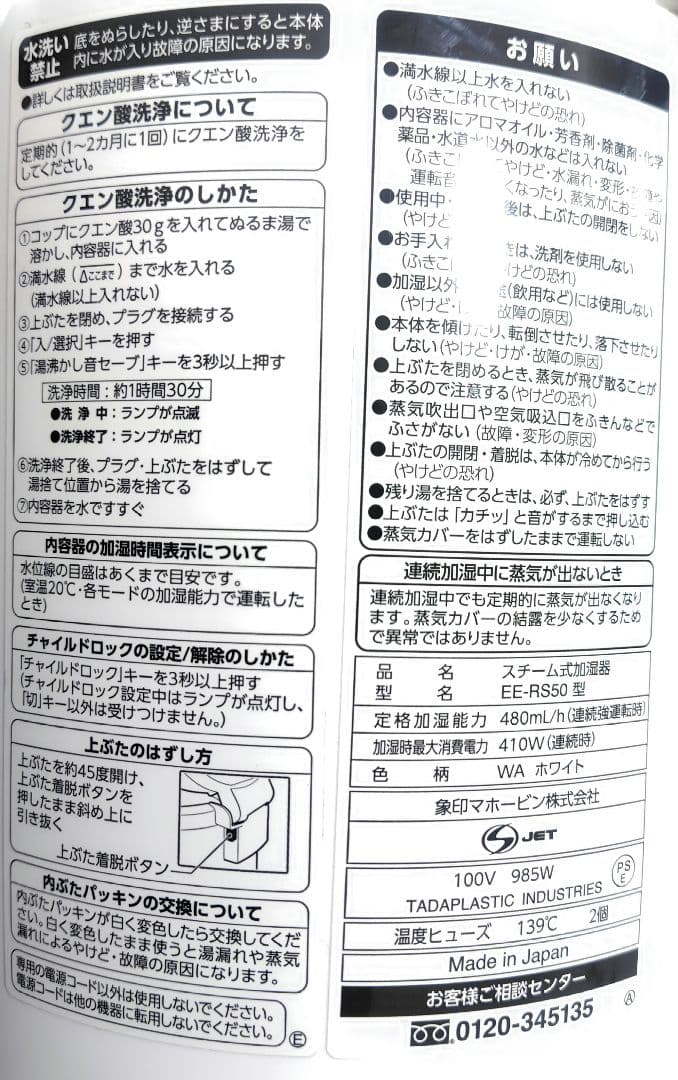 水洗い
禁止
底をぬらしたり、逆さまにすると本体
内に水が入り故障の原因になります。
●詳しくは取扱説明書をご覧ください。
クエン酸洗浄について
定期的(1〜2カ月に1回)にクエン酸洗浄を
してください。
クエン酸洗浄のしかた
①コップにクエン酸30gを入れてぬるま湯で
溶かし、内容器に入れる
②満水線(△ここまで)まで水を入れる
(満水線以上入れない)
③上ぶたを閉め、プラグを接続する
④「入/選択」キーを押す
⑤「湯沸かし音セーブ」キーを3秒以上押す
洗浄時間:約1時間30分
●洗 浄 中:ランプが点滅
●洗浄終了:ランプが点灯
⑥洗浄終了後、プラグ・上ぶたをはずして
湯捨て位置から湯を捨てる
⑦内容器を水ですすぐ
内容器の加湿時間表示について
水位線の目盛はあくまで目安です。
(室温20℃・各モードの加湿能力で運転した
とき)
チャイルドロックの設定/解除のしかた
「チャイルドロック」キーを3秒以上押す
(チャイルドロック設定中はランプが点灯し、
「切」キー以外は受けつけません。)
上ぶたのはずし方
上ぶたを約45度開け、
上ぶた着脱ボタンを
押したまま斜め上に
引き抜く
上ぶた着脱ボタン
内ぶたパッキンの交換について
内ぶたパッキンが白く変色したら交換してくだ
さい。白く変色したまま使うと湯漏れや蒸気
漏れによるやけど・故障の原因になります。
専用の電源コード以外は使用しないでください。
電源コードは他の機器に転用しないでください。
Ⓔ
お願い
●満水線以上水を入れない
(ふきこぼれてやけどの恐れ)
●内容器にアロマオイル・芳香剤・除菌剤・化学
薬品・水道水以外の水などは入れない
(ふきこ やけど・水漏れ・変形・
運転音 くなったり、蒸気がにお 因)
●使用中・ 後は、上ぶたの開閉をしない
(やけど
●お手入れ は、洗剤を使用しない
(ふきこ けどの恐れ)
●加湿以外 (飲用など)には使用しない
(やけど・ 故障の原因)
●本体を傾けたり、転倒させたり、落下させたり
しない(やけど・けが・故障の原因)
●上ぶたを閉めるとき、蒸気が飛び散ることが
あるので注意する(やけどの恐れ)
●蒸気吹出口や空気吸込口をふきんなどで
ふさがない(故障・変形の原因)
●上ぶたの開閉・着脱は、本体が冷めてから行う
(やけどの恐れ)
●残り湯を捨てるときは、必ず、上ぶたをはずす
●上ぶたは「カチッ」と音がするまで押し込む
●蒸気カバーをはずしたままで運転しない
連続加湿中に蒸気が出ないとき
連続加湿中でも定期的に蒸気が出なくなり
ます。蒸気カバーの結露を少なくするため
で異常ではありません。
品 名 スチーム式加湿器
型 名 EE-RS50 型
定格加湿能力 480mL/h(連続強運転時)
加湿時最大消費電力 410W(連続時)
色 柄 WA ホワイト
象印マホービン株式会社
JET
100V 985W
PS
E
TADAPLASTIC INDUSTRIES
温度ヒューズ 139℃ 2個
Made in Japan
お客様ご相談センター
0120-345135
Ⓐ